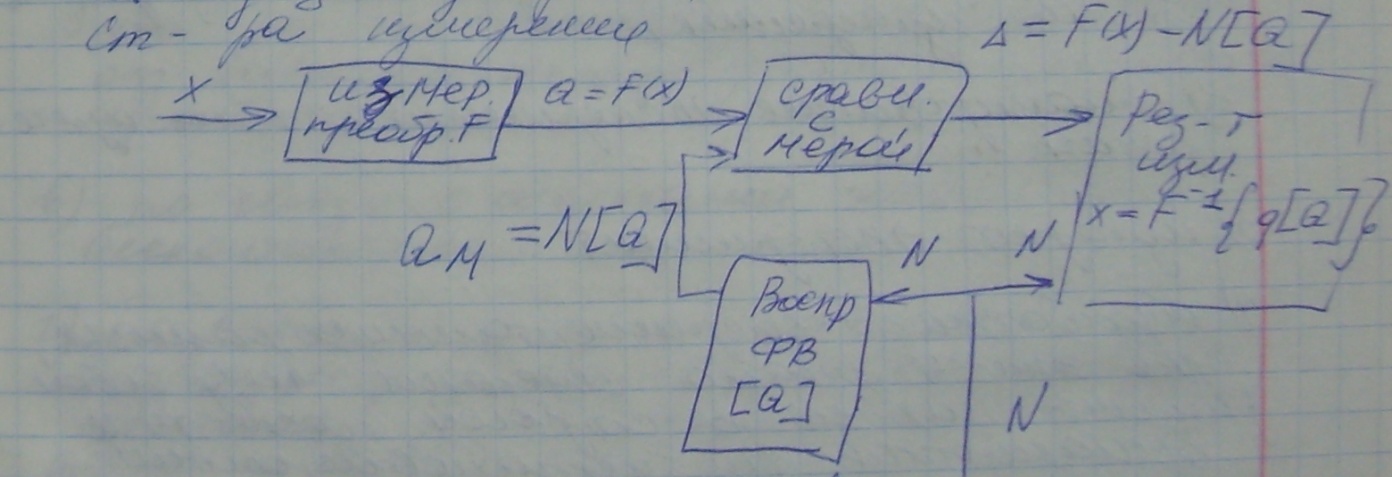 ст-ра измерение
Δ = F(x) - N[Q]
X
измер.
преобр. F
Q = F(x)
сравн.
с
мерой
Рез-т
изм.
x = F⁻¹{q[Q]}
Qм = N[Q]
N
N
Воспр
ФВ
[Q]
N